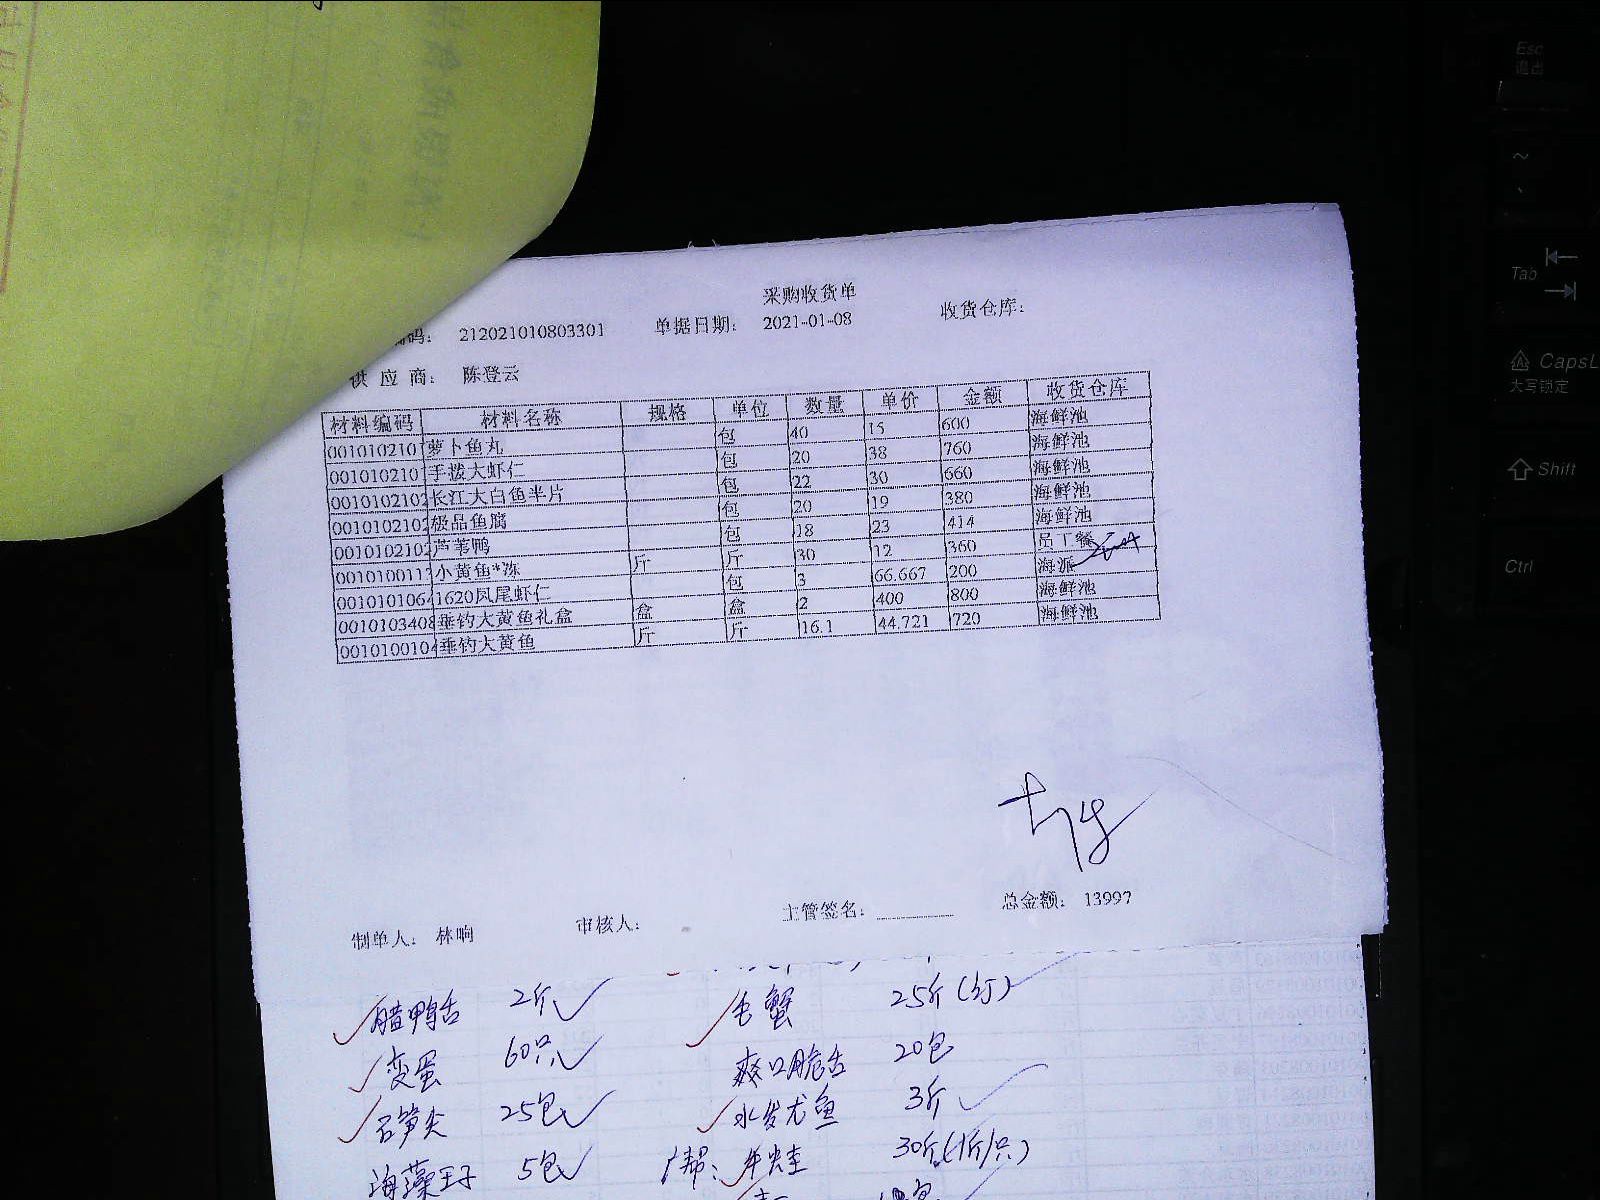 采购收货单
编码： 212021010803301 单据日期： 2021-01-08 收货仓库：
供 应 商： 陈登云
材料编码 材料名称 规格 单位 数量 单价 金额 收货仓库
0010102107 萝卜鱼丸 包 40 15 600 海鲜池
0010102107 手拨大虾仁 包 20 38 760 海鲜池
0010102102 长江大白鱼半片 包 22 30 660 海鲜池
0010102102 极品鱼腐 包 20 19 380 海鲜池
0010102102 芦苇鸭 包 18 23 414 海鲜池
001010011 小黄鱼*冻 斤 斤 30 12 360 员工餐
001010106 1620凤尾虾仁 包 3 66.667 200 海派
0010103408 垂钓大黄鱼礼盒 盒 盒 2 400 800 海鲜池
001010010 垂钓大黄鱼 斤 斤 16.1 44.721 720 海鲜池
制单人： 林响 审核人： 主管签名： 总金额： 13997
腊鸭舌 2斤 毛蟹 25斤
变蛋 60只 爽口脆舌 20包
石笋尖 25包 水发尤鱼 3斤
海藻王子 5包 30斤(1斤/只)
Esc
退出
Tab
CapsL
大写锁定
Shift
Ctrl